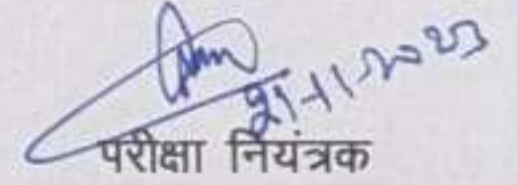 21-11-2023
परीक्षा नियंत्रक